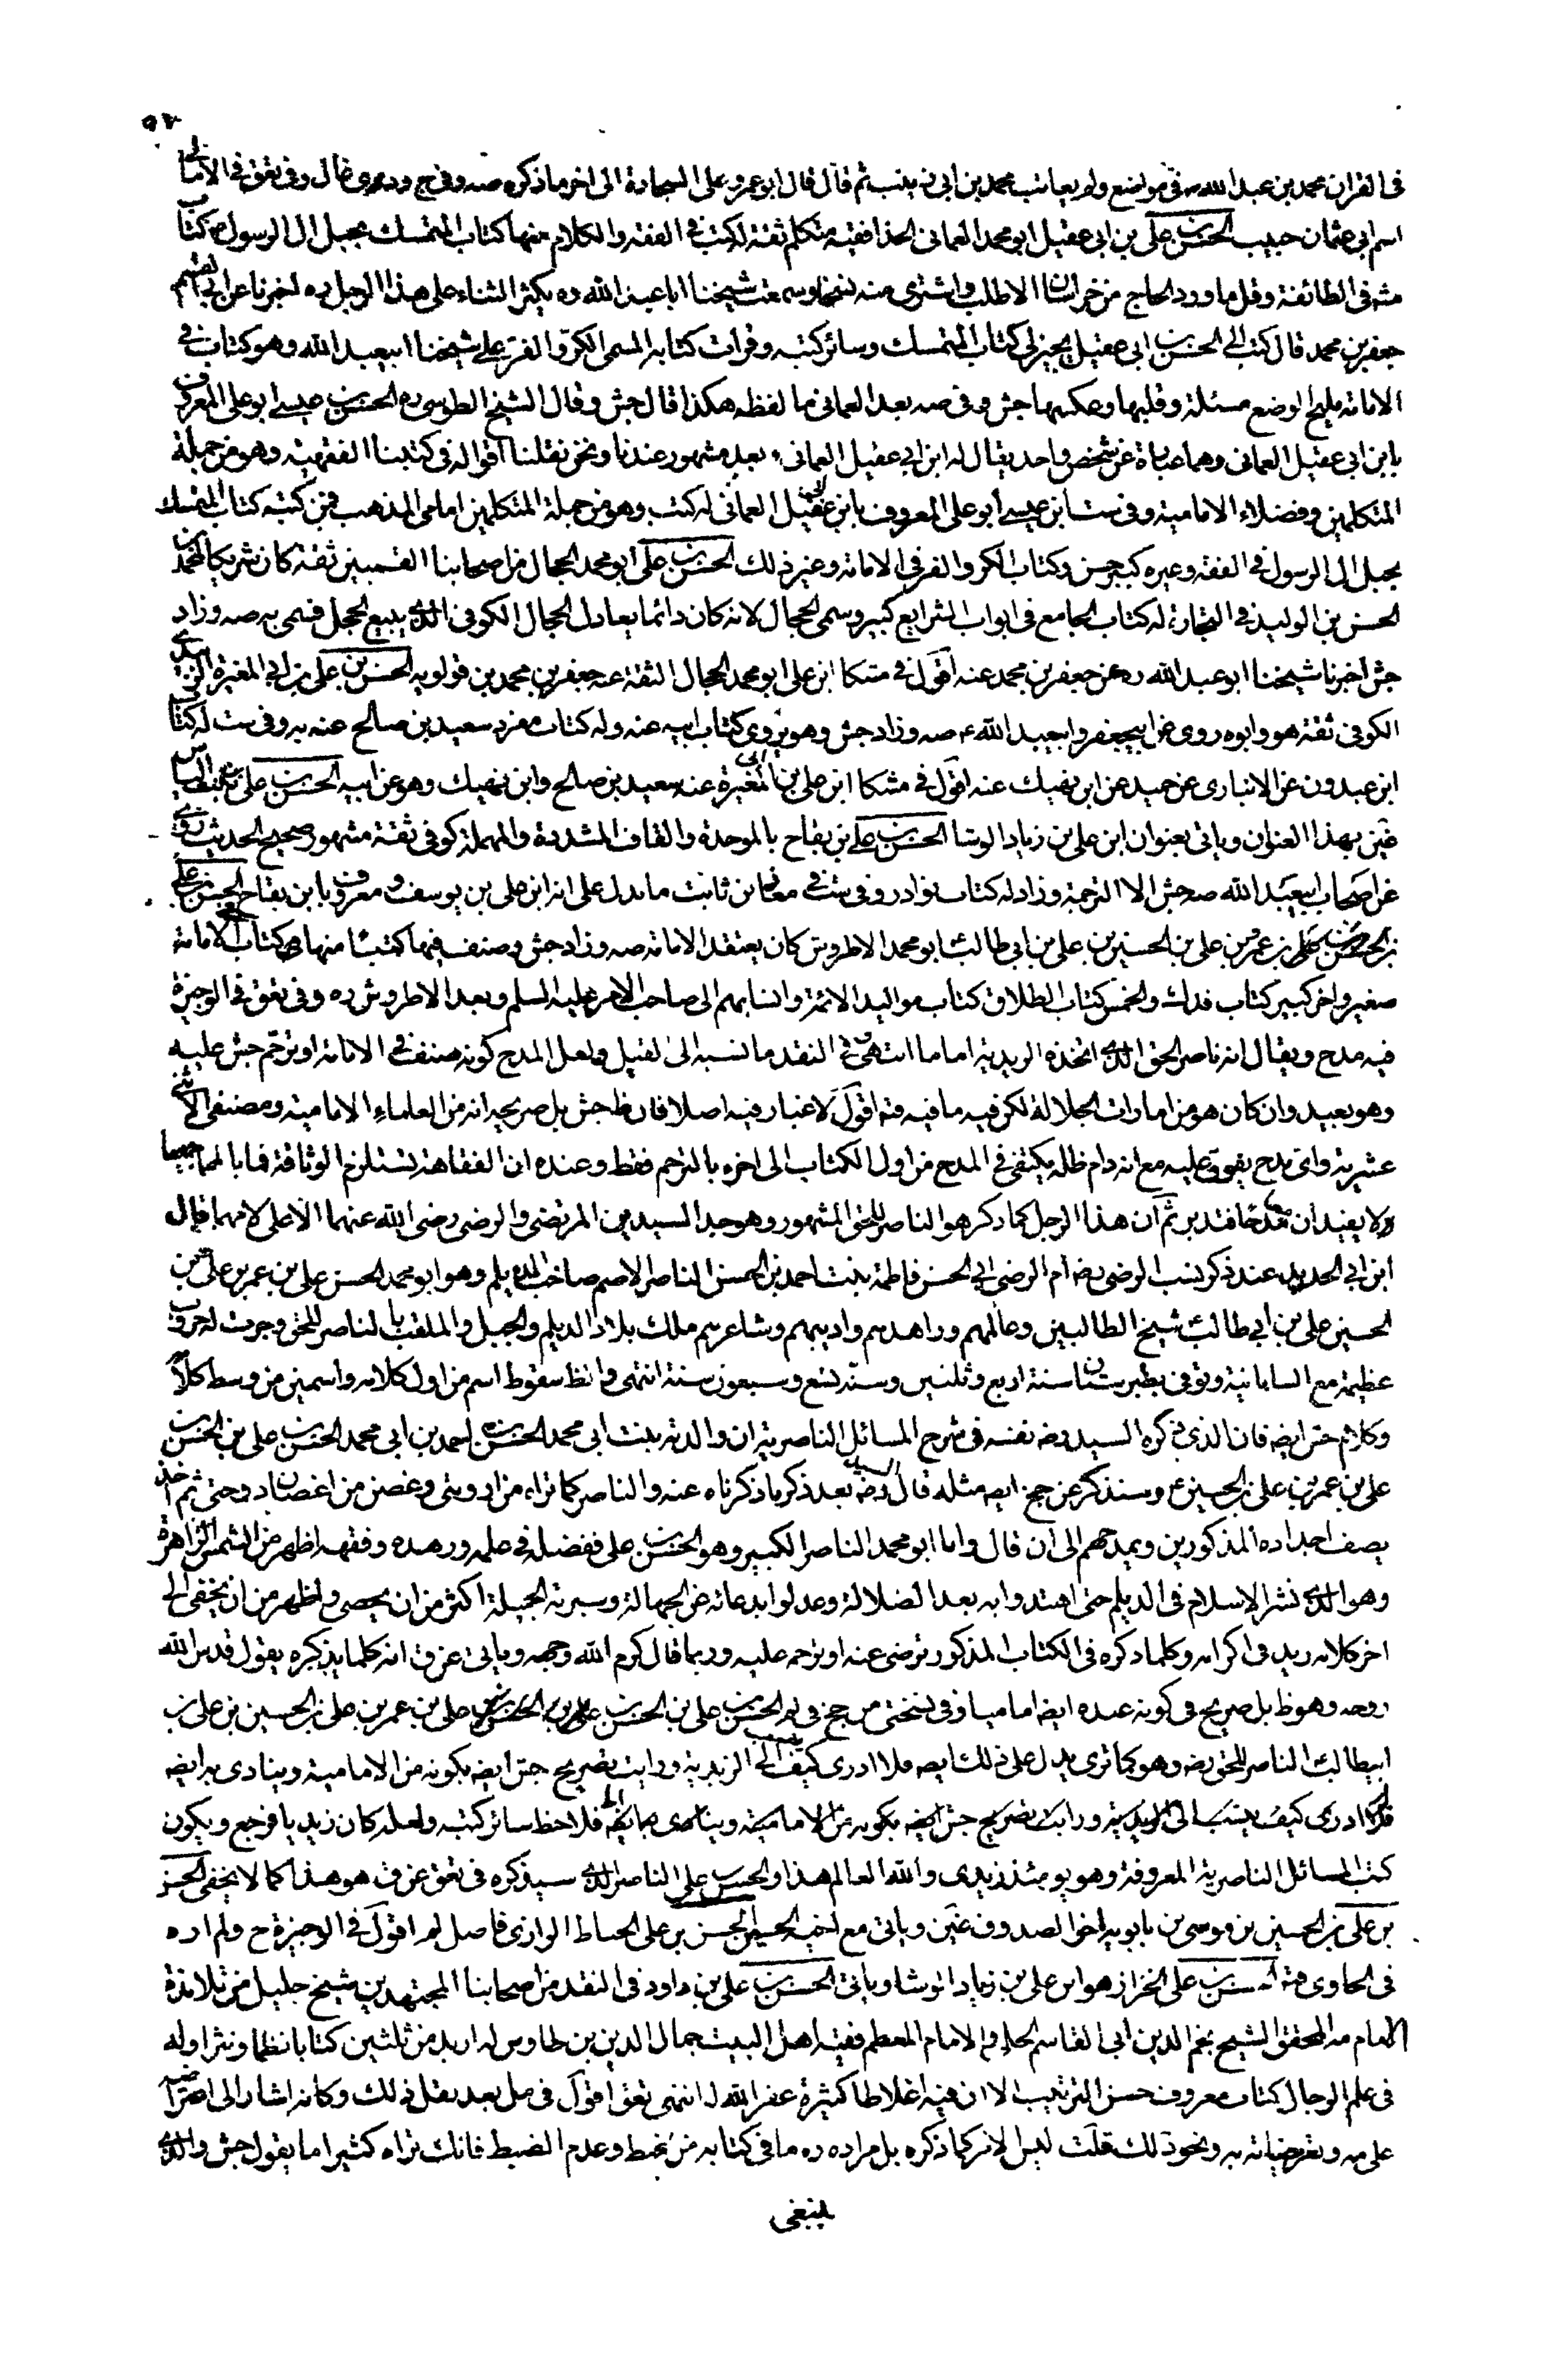 ٩٧
فى القران محمد بن عبد الله ص فى مواضع ولم يعاتب محمد بن ابى زينب ثم قال قال ابو عمرو على السجادة الى اخر ما ذكره صه وفى ج ودى وفى تعق فى الامالى
اسم ابى عثمان حبيب الحسن بن على بن ابى عقيل ابو محمد العمانى الحذا فقيه متكلم ثقة له كتب فى الفقه والكلام منها كتاب المتمسك بحبل ال الرسول ص كتاب
مشهور فى الطائفة وقل ما ورد الحاج من خراسان الا طلب واشترى منه نسخا وسمعت شيخنا ابا عبد الله ره يكثر الثناء على هذا الرجل ره اخبرنا عن ابى القسم
جعفر بن محمد قال كتب الى الحسن بن ابى عقيل يجيز لى كتاب المتمسك وسائر كتبه وقرات كتابه المسمى الكر والفر على شيخنا ابيعبد الله وهو كتاب فى
الامامة مليح الوضع مسئلة وقلبها وعكسها جش وفى صه بعد العمانى ما لفظه هكذا قال جش وقال الشيخ الطوسى ره الحسن بن عيسى ابو على المعروف
بابن ابى عقيل العمانى وهما عبارة عن شخص واحد يقال له ابن ابى عقيل العمانى مشهور عندنا ونحن نقلنا اقواله فى كتبنا الفقهية وهو من جملة
المتكلمين وفضلاء الامامية وفى ست ابن عيسى ابو على المعروف بابن ابى عقيل العمانى له كتب وهو من جملة المتكلمين امامى المذهب فمن كتبه كتاب المتمسك
بحبل ال الرسول فى الفقه وغيره كبير حسن وكتاب الكر والفر فى الامامة وغير ذلك الحسن بن على ابو محمد الحجال من اصحابنا القميين ثقة كان شريكا لمحمد بن
الحسن بن الوليد فى التجارة له كتاب الجامع فى ابواب الشرايع كبير وسمى الحجال لانه كان دائما يعادل الحجال الكوفى الذى يبيع الحجل فسمى به صه وزاد
جش اخبرنا شيخنا ابو عبد الله ره عن جعفر بن محمد عنه اقول فى مشكا ابن على ابو محمد الحجال الثقة عنه جعفر بن محمد بن قولويه الحسن بن على بن ابى المغيرة الزبيدى
الكوفى ثقة هو وابوه روى عن ابيجعفر وابيعبد الله ع صه وزاد جش وهو يروى كتاب ابيه عنه وله كتاب مفرد سعيد بن صالح عنه به وفى ست له كتاب
ابن عبدون عن الانبارى عن حميد عن ابن نهيك عنه اقول فى مشكا ابن على بن ابى المغيرة عنه سعيد بن صالح وابن نهيك وهو عن ابيه الحسن بن على بن بنت الياس
غير بهذا العنوان وياتى بعنوان ابن على بن زياد الوشا الحسن بن على بن بقاح بالموحدة والقاف المشددة والمهملة كوفى ثقة مشهور صحيح الحديث روى
عن اصحاب ابيعبد الله صه جش الا الترجمة وزاد له كتاب نوادر وفى ست فى معاذ بن ثابت ما يدل على انه ابن على بن يوسف ومعروف بابن بقاح الحسن بن على
بن الحسن بن على بن عمر بن على بن الحسين بن على بن ابى طالب ابو محمد الاطروش كان يعتقد الامامة صه وزاد جش وصنف فيها كتبا منها كتاب الامامة
صغير واخر كبير كتاب فدك والخمس كتاب الطلاق كتاب مواليد الائمة وانسابهم الى صاحب الامر عليه السلم وبعد الاطروش ره وفى تعق فى الوجيزة
فيه مدح ويقال انه ناصر الحق الذى اتخذه الزيدية اماما انتهى وفى النقد ما نسبه الى القيل ولعل المدح كونه صنف فى الامامة او ترحم جش عليه
وهو بعيد وان كان هو من امارات الجلالة لكن فيه ما فيه فتد اقول لا غبار فيه اصلا فان ظ جش بل صريحه انه من العلماء الامامية ومصنفى الاثنى
عشرية واى مدح يفوق عليه مع انه دام ظله يكتفى فى المدح من اول الكتاب الى اخره بالترحم فقط وعنده ان الفقاهة تستلزم الوثاقة فما بالهما جميعا
لا يفيدان مدحا فتدبر ثم ان هذا الرجل كما ذكر هو الناصر للحق المشهور وهو جد السيدين المرتضى والرضى رضى الله عنهما الاعلى لامهما قال
ابن ابى الحديد عند ذكر نسب الرضى رضه ام الرضى ابى الحسن فاطمة بنت احمد بن الحسن الناصر الاصم صاحب الديلم وهو ابو محمد الحسن على بن عمر بن على بن
الحسين على بن ابى طالب شيخ الطالبيين وعالمهم وزاهدهم واديبهم وشاعرهم ملك بلاد الديلم والجبل والملقب بالناصر للحق وجرت له حروب
عظيمة مع السامانية وتوفى بطبرستان سنة اربع وثلثين وسنه تسع وسبعون سنة انتهى والظ سقوط اسم من اول كلامه واسمين من وسط كلامه
وكلام جش ايضه فان الذى ذكره السيد رضه نفسه فى شرح المسائل الناصرية ان والدته بنت ابى محمد الحسن بن احمد بن ابى محمد الحسن بن على بن الحسن بن
على بن عمر بن على بن الحسين ع وسنذكر عن جخ ايضه مثله قال السيد رضه بعد ذكر ما ذكرناه عنه والناصر كما تراه من ارومتى وغصن من اغصان دوحتى ثم اخذ
يصف اجداده المذكورين ويمدحهم الى ان قال واما ابو محمد الناصر الكبير وهو الحسن بن على ففضله فى علمه وزهده وفقهه اظهر من الشمس الزاهرة
وهو الذى نشر الاسلام فى الديلم حتى اهتدوا به بعد الضلالة وعدلوا بدعائه عن الجهالة وسيرته الجميلة اكثر من ان يحصى واظهر من ان يخفى الى
اخر كلامه زيد فى اكرامه وكلما ذكره فى الكتاب المذكور ترضى عنه او ترحم عليه وربما قال كرم الله وجهه وياتى عن ق انه كلما يذكره يقول قدس الله
روحه وهو ظ بل صريح فى كونه عنده ايضه اماميا وفى نسختى من جخ فى لم الحسن بن على بن الحسن بن على بن عمر بن على بن الحسين بن على بن
ابيطالب الناصر للحق رضه وهو كما ترى يدل على ذلك ايضه فلا ادرى كيف ينسب الى الزيدية ورايت تصريح جش ايضه بكونه من الامامية وينادى به ايضه
فلا ادرى كيف ينسب الى الزيدية ورايت تصريح جش ايضه بكونه من الامامية وينادى به ايضه فلاحظ سائر كتبه ولعله كان زيديا فرجع ويكون
كتب المسائل الناصرية المعروفة وهو يومئذ زيدى والله العالم هذا والحسن بن على الناصر الذى سيذكره فى تعق عن ق هو هذا كما لا يخفى الحسن
بن على بن الحسين بن موسى بن بابويه اخو الصدوق غير وياتى مع اخيه الحسين الحسن بن على الحناط الرازى فاضل لم اقول فى الوجيزة ح ولم اره
فى الحاوى فتد الحسن بن على الخزاز هو ابن على بن زياد الوشا وياتى الحسن بن على بن داود فى النقد من اصحابنا المجتهدين شيخ جليل من تلامذة
الامام المحقق الشيخ نجم الدين ابى القاسم الحلى والامام المعظم فقيه اهل البيت جمال الدين بن طاوس له ازيد من ثلثين كتابا نظما ونثرا وله
فى علم الرجال كتاب معروف حسن الترتيب الا ان فيه اغلاطا كثيرة غفر الله له انتهى تعق اقول فى مل بعد نقل ذلك وكانه اشار الى اعتراضاته
على مه وتعريضاته به ونحو ذلك قلت ليس الامر كما ذكره بل مراده ره ما فى كتابه من خبط وعدم الضبط فانك تراه كثيرا ما يقول جش والذى
ينبغى